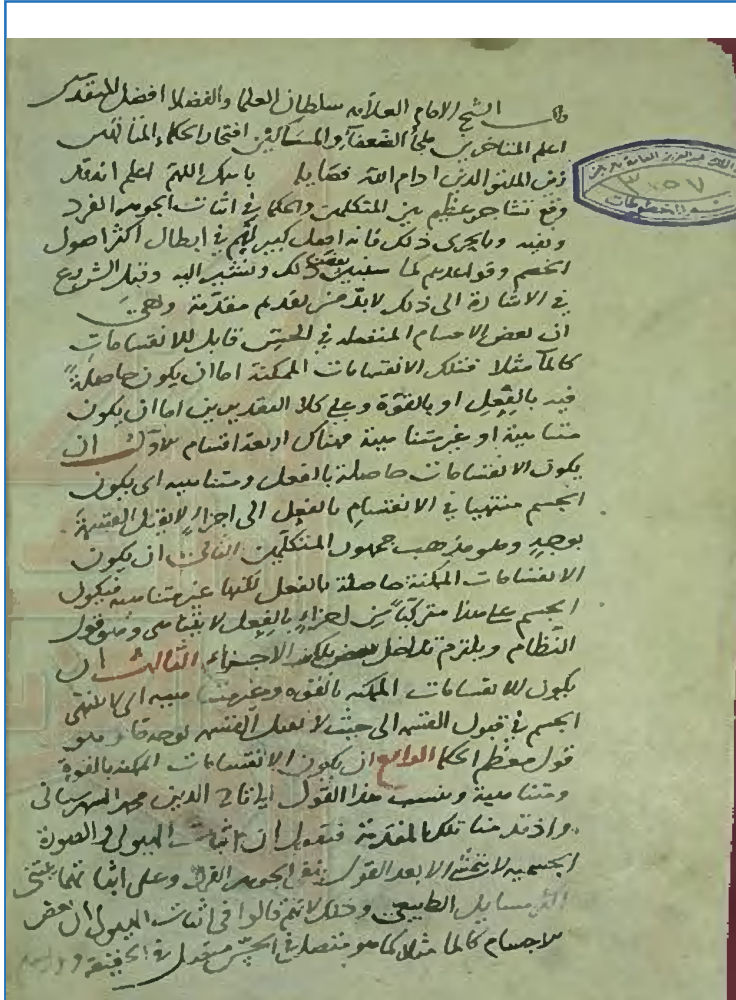 قال الشيخ الامام العلامه سلطان العلما والفضلا افضل المتقدمين
اعلم المتاخرين ملجأ الضعفآء والمساكين افتخار الحكماء المتألهين
الدين ادام الله فضايله باسمك اللهم اعلم انه قد
وقع تشاجر عظيم بين المتكلمين والحكما في اثبات الجوهر الفرد
ونفيه وبالحرى ذلك فانه اصل كبير لهم في ابطال اكثر اصول
الخصم وقواعدهم كما سنبين بعض ذلك ونشير اليه وقبل الشروع
في الاشارة الى ذلك لابد من تقديم مقدمة وهى
ان بعض الاجسام المنفصله في الحس قابل للانقسامات
كالمآ مثلا فتلك الانقسامات الممكنة اما ان يكون حاصلة
فيه بالفعل او بالقوة وعلى كلا التقديرين اما ان يكون
متناهية او غير متناهية فهناك اربعة اقسام الاول ان
يكون الانقسامات حاصلة بالفعل ومتناهيه اى يكون
الجسم منتهيا في الانقسام بالفعل الى اجزاء لا يقبل القسمة
بوجه وهو مذهب جمهور المتكلمين الثانى ان يكون
الانقسامات الممكنة حاصلة بالفعل لكنها غير متناهيه فيكون
الجسم على هذا متركبا من اجزاء بالفعل لا يتناهى وهو قول
النظام ويلتزم تداخل بعض تلك الاجزاء الثالث ان
يكون الانقسامات الممكنه بالقوه وغير متناهيه اى لا ينتهى
الجسم في قبول القسمه الى حيث لا يقبل القسمه بوجه وهو
قول معظم الحكما الرابع ان يكون الانقسامات الممكنه بالقوة
ومتناهية وينسب هذا القول الى الدين محمد الشهرستانى
واذ قدمنا تلك المقدمة فنقول ان اثبات الهيولى والصورة
الجسميه لا يتمشى الا بعد القول بنفى الجوهر الفرد وعلى اثباتهما يبتنى
اكثر مسايل الطبيعى وذلك لانهم قالوا في اثبات الهيولى ان بعض
الاجسام كالما مثلا كما هو متصل في الحس متصل في الحقيقة
٣٠٥٧